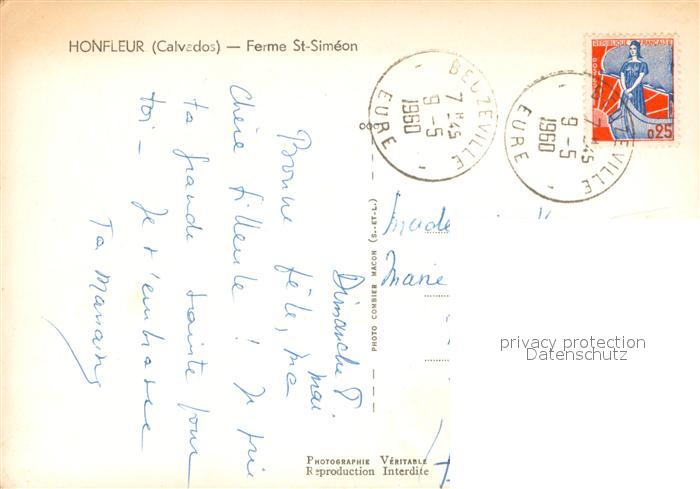 HONFLEUR (Calvados) — Ferme St-Siméon
BEUZEVILLE
7 H 45
9 - 5
1960
EURE
BEUZEVILLE
7 H 45
9 - 5
1960
EURE
REPUBLIQUE FRANÇAISE
POSTES
0,25
Dimanche 8 mai
Bonne fête, ma
chère fillette ! Je prie
ta grande sainte pour
toi — Je t'embrasse
Ta Marraine
PHOTO COMBIER MACON (S.-ET-L.)
Made
Marie
privacy protection
Datenschutz
PHOTOGRAPHIE VÉRITABLE
Reproduction Interdite